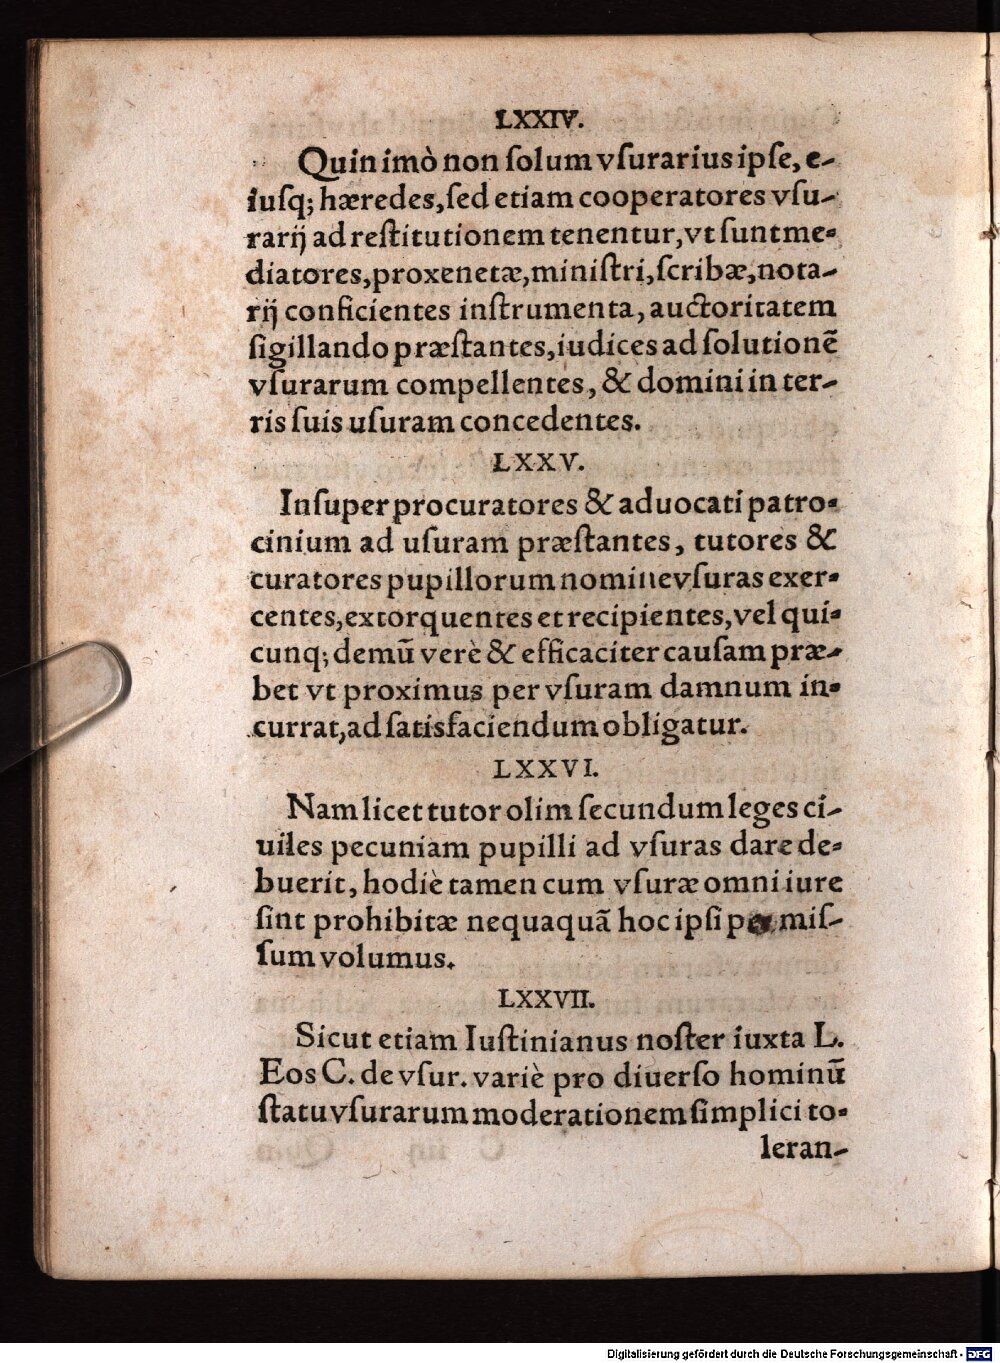 LXXIV.
Quin imò non ſolum vſurarius ipſe, e-
iuſq; hæredes, ſed etiam cooperatores vſu-
rarij ad reſtitutionem tenentur, vt ſunt me-
diatores, proxenetæ, miniſtri, ſcribæ, nota-
rij conficientes inſtrumenta, auctoritatem
ſigillando præſtantes, iudices ad ſolutionē
vſurarum compellentes, & domini in ter-
ris ſuis uſuram concedentes.
LXXV.
Inſuper procuratores & aduocati patro-
cinium ad uſuram præſtantes, tutores &
curatores pupillorum nomine vſuras exer-
centes, extorquentes et recipientes, vel qui-
cunq; demū verè & efficaciter cauſam præ-
bet vt proximus per vſuram damnum in-
currat, ad ſatisfaciendum obligatur.
LXXVI.
Nam licet tutor olim ſecundum leges ci-
uiles pecuniam pupilli ad vſuras dare de-
buerit, hodiè tamen cum vſuræ omni iure
ſint prohibitæ nequaquā hoc ipſi permiſ-
ſum volumus.
LXXVII.
Sicut etiam Iuſtinianus noſter iuxta L.
Eos C. de vſur. variè pro diuerſo hominū
ſtatu vſurarum moderationem ſimplici to-
leran-
Digitalisierung gefördert durch die Deutsche Forschungsgemeinschaft - DFG